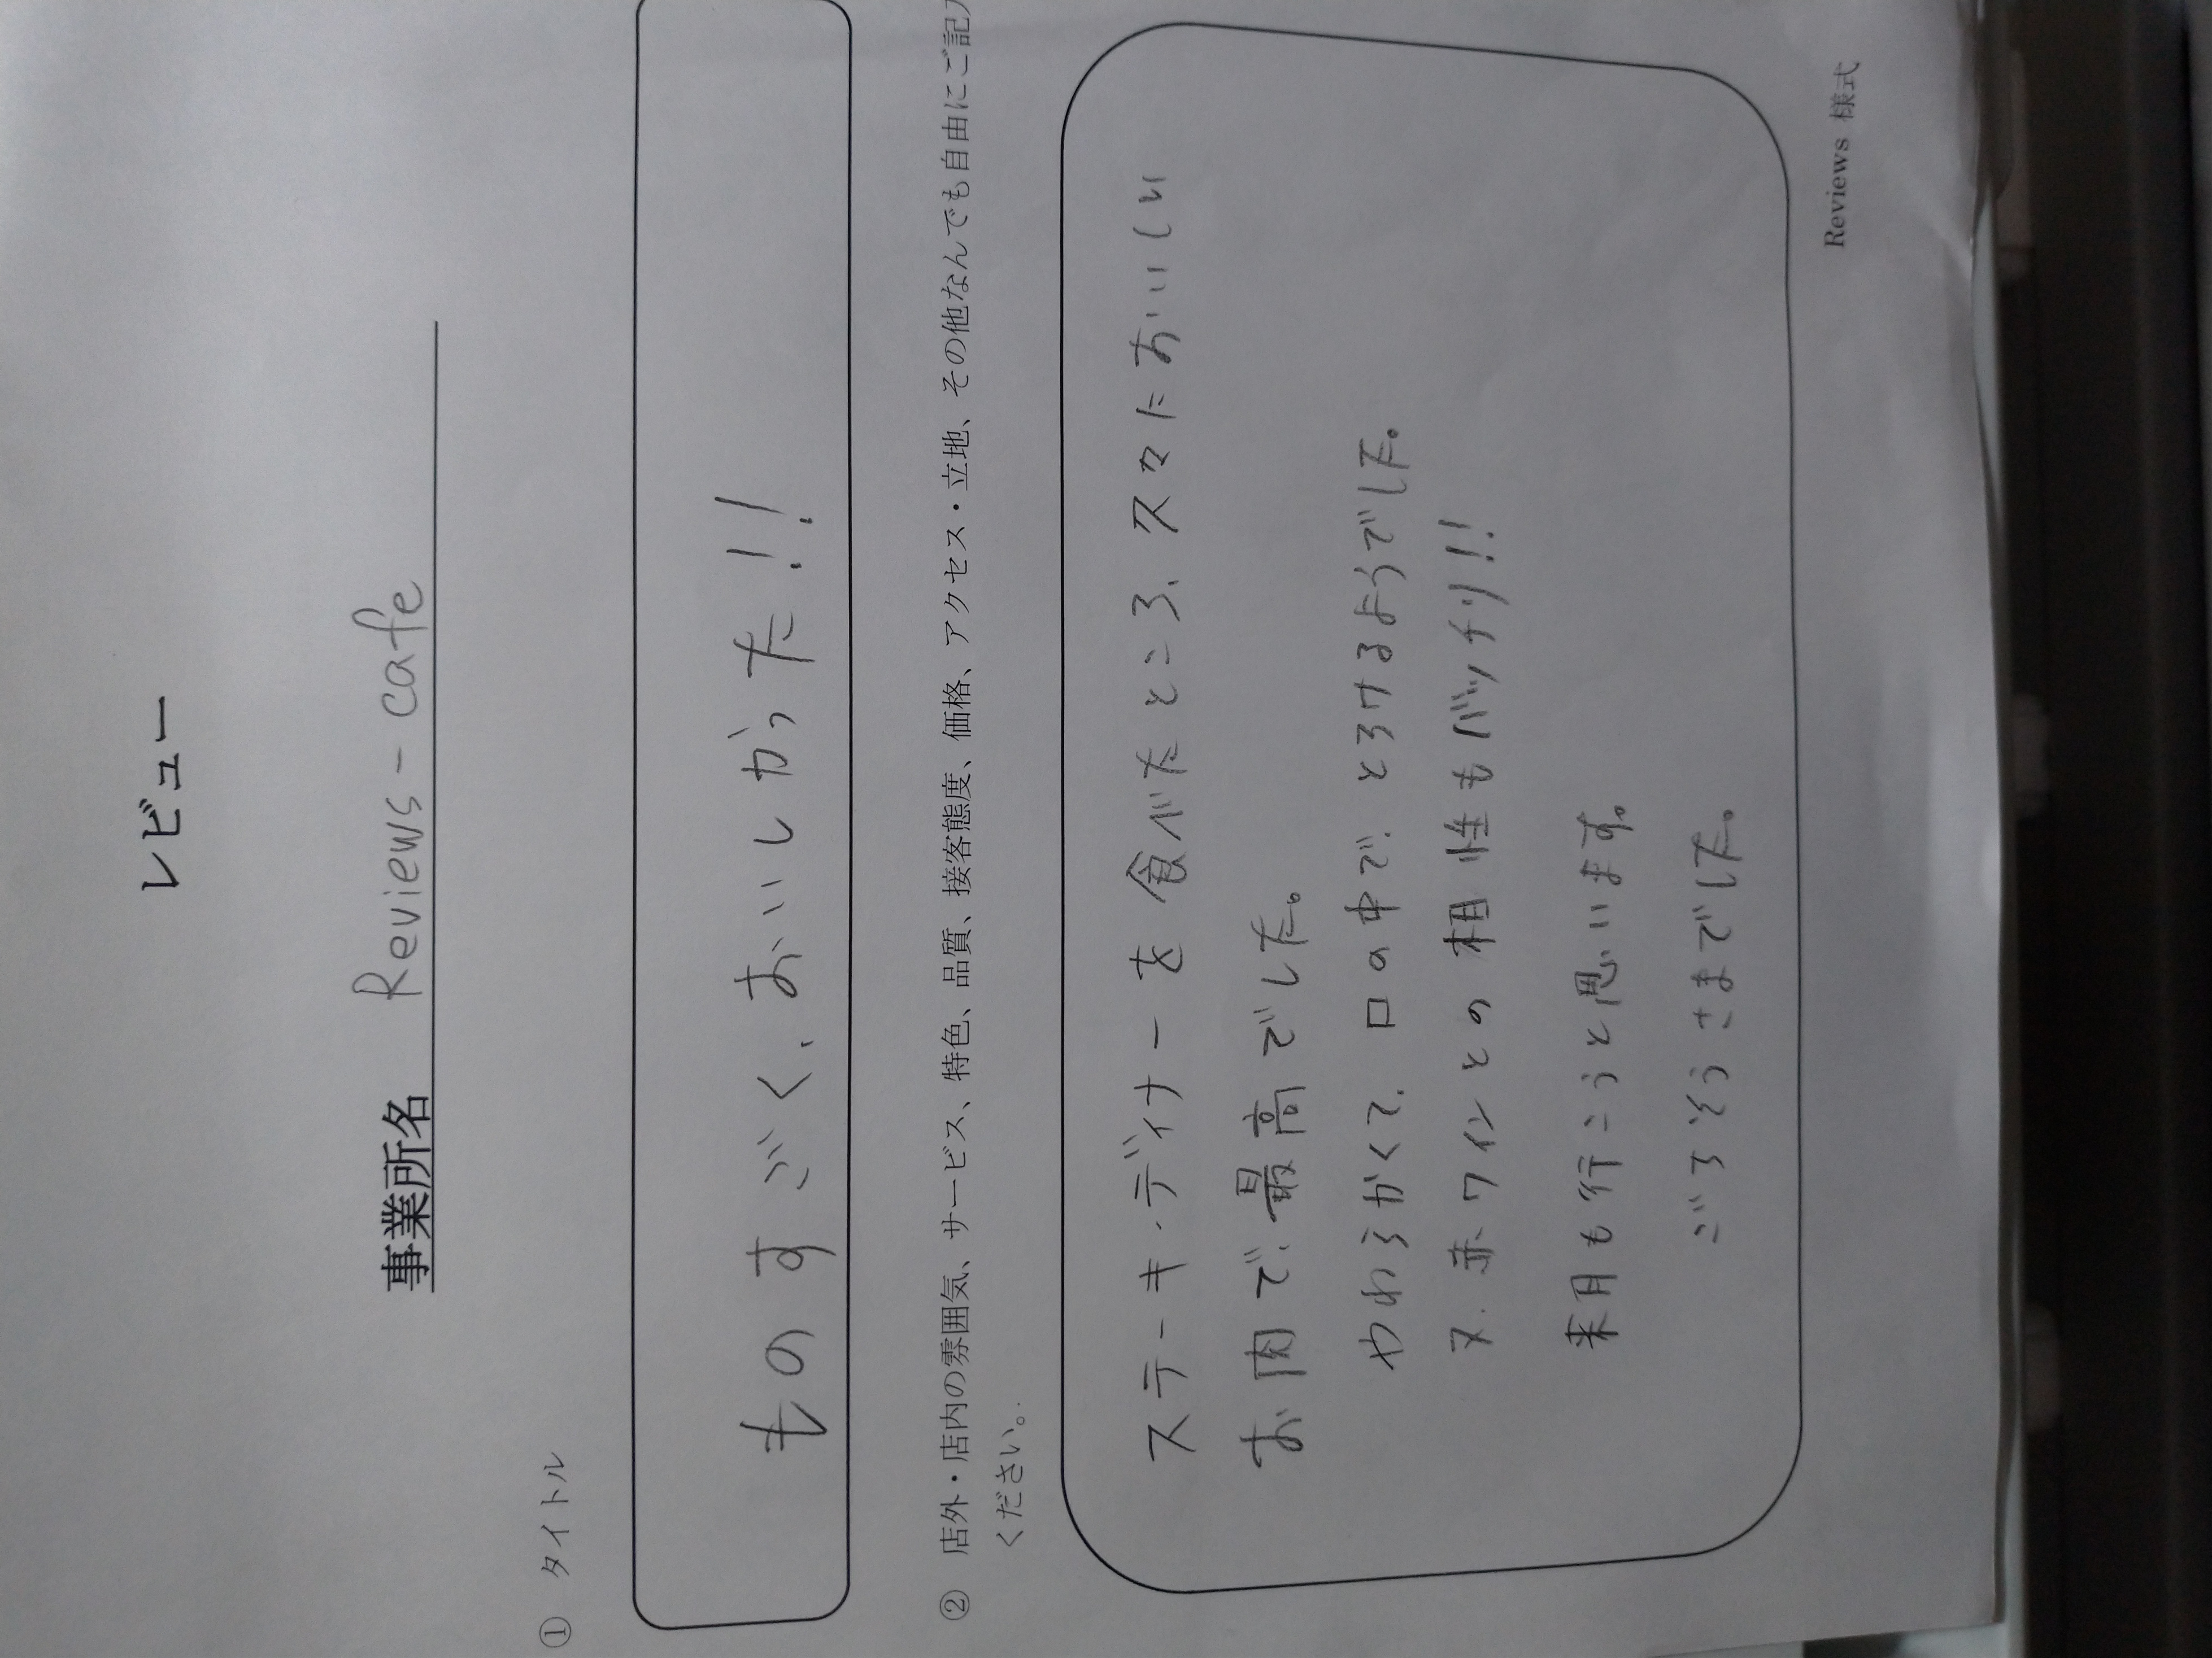 レビュー
事業所名 Reviews-cafe
① タイトル
ものすごく、おいしかった!!
② 店外・店内の雰囲気、サービス、特色、品質、接客態度、価格、アクセス・立地、その他なんでも自由にご記入
ください。
ステーキ・ディナーを食べたところ、久々においしい
お肉で、最高でした。
やわらかくて、口の中で、とろけるようでした。
又、赤ワインとの相性もバッチリ!!
来月も行こうと思います。
ごちそうさまでした。
Reviews 様式